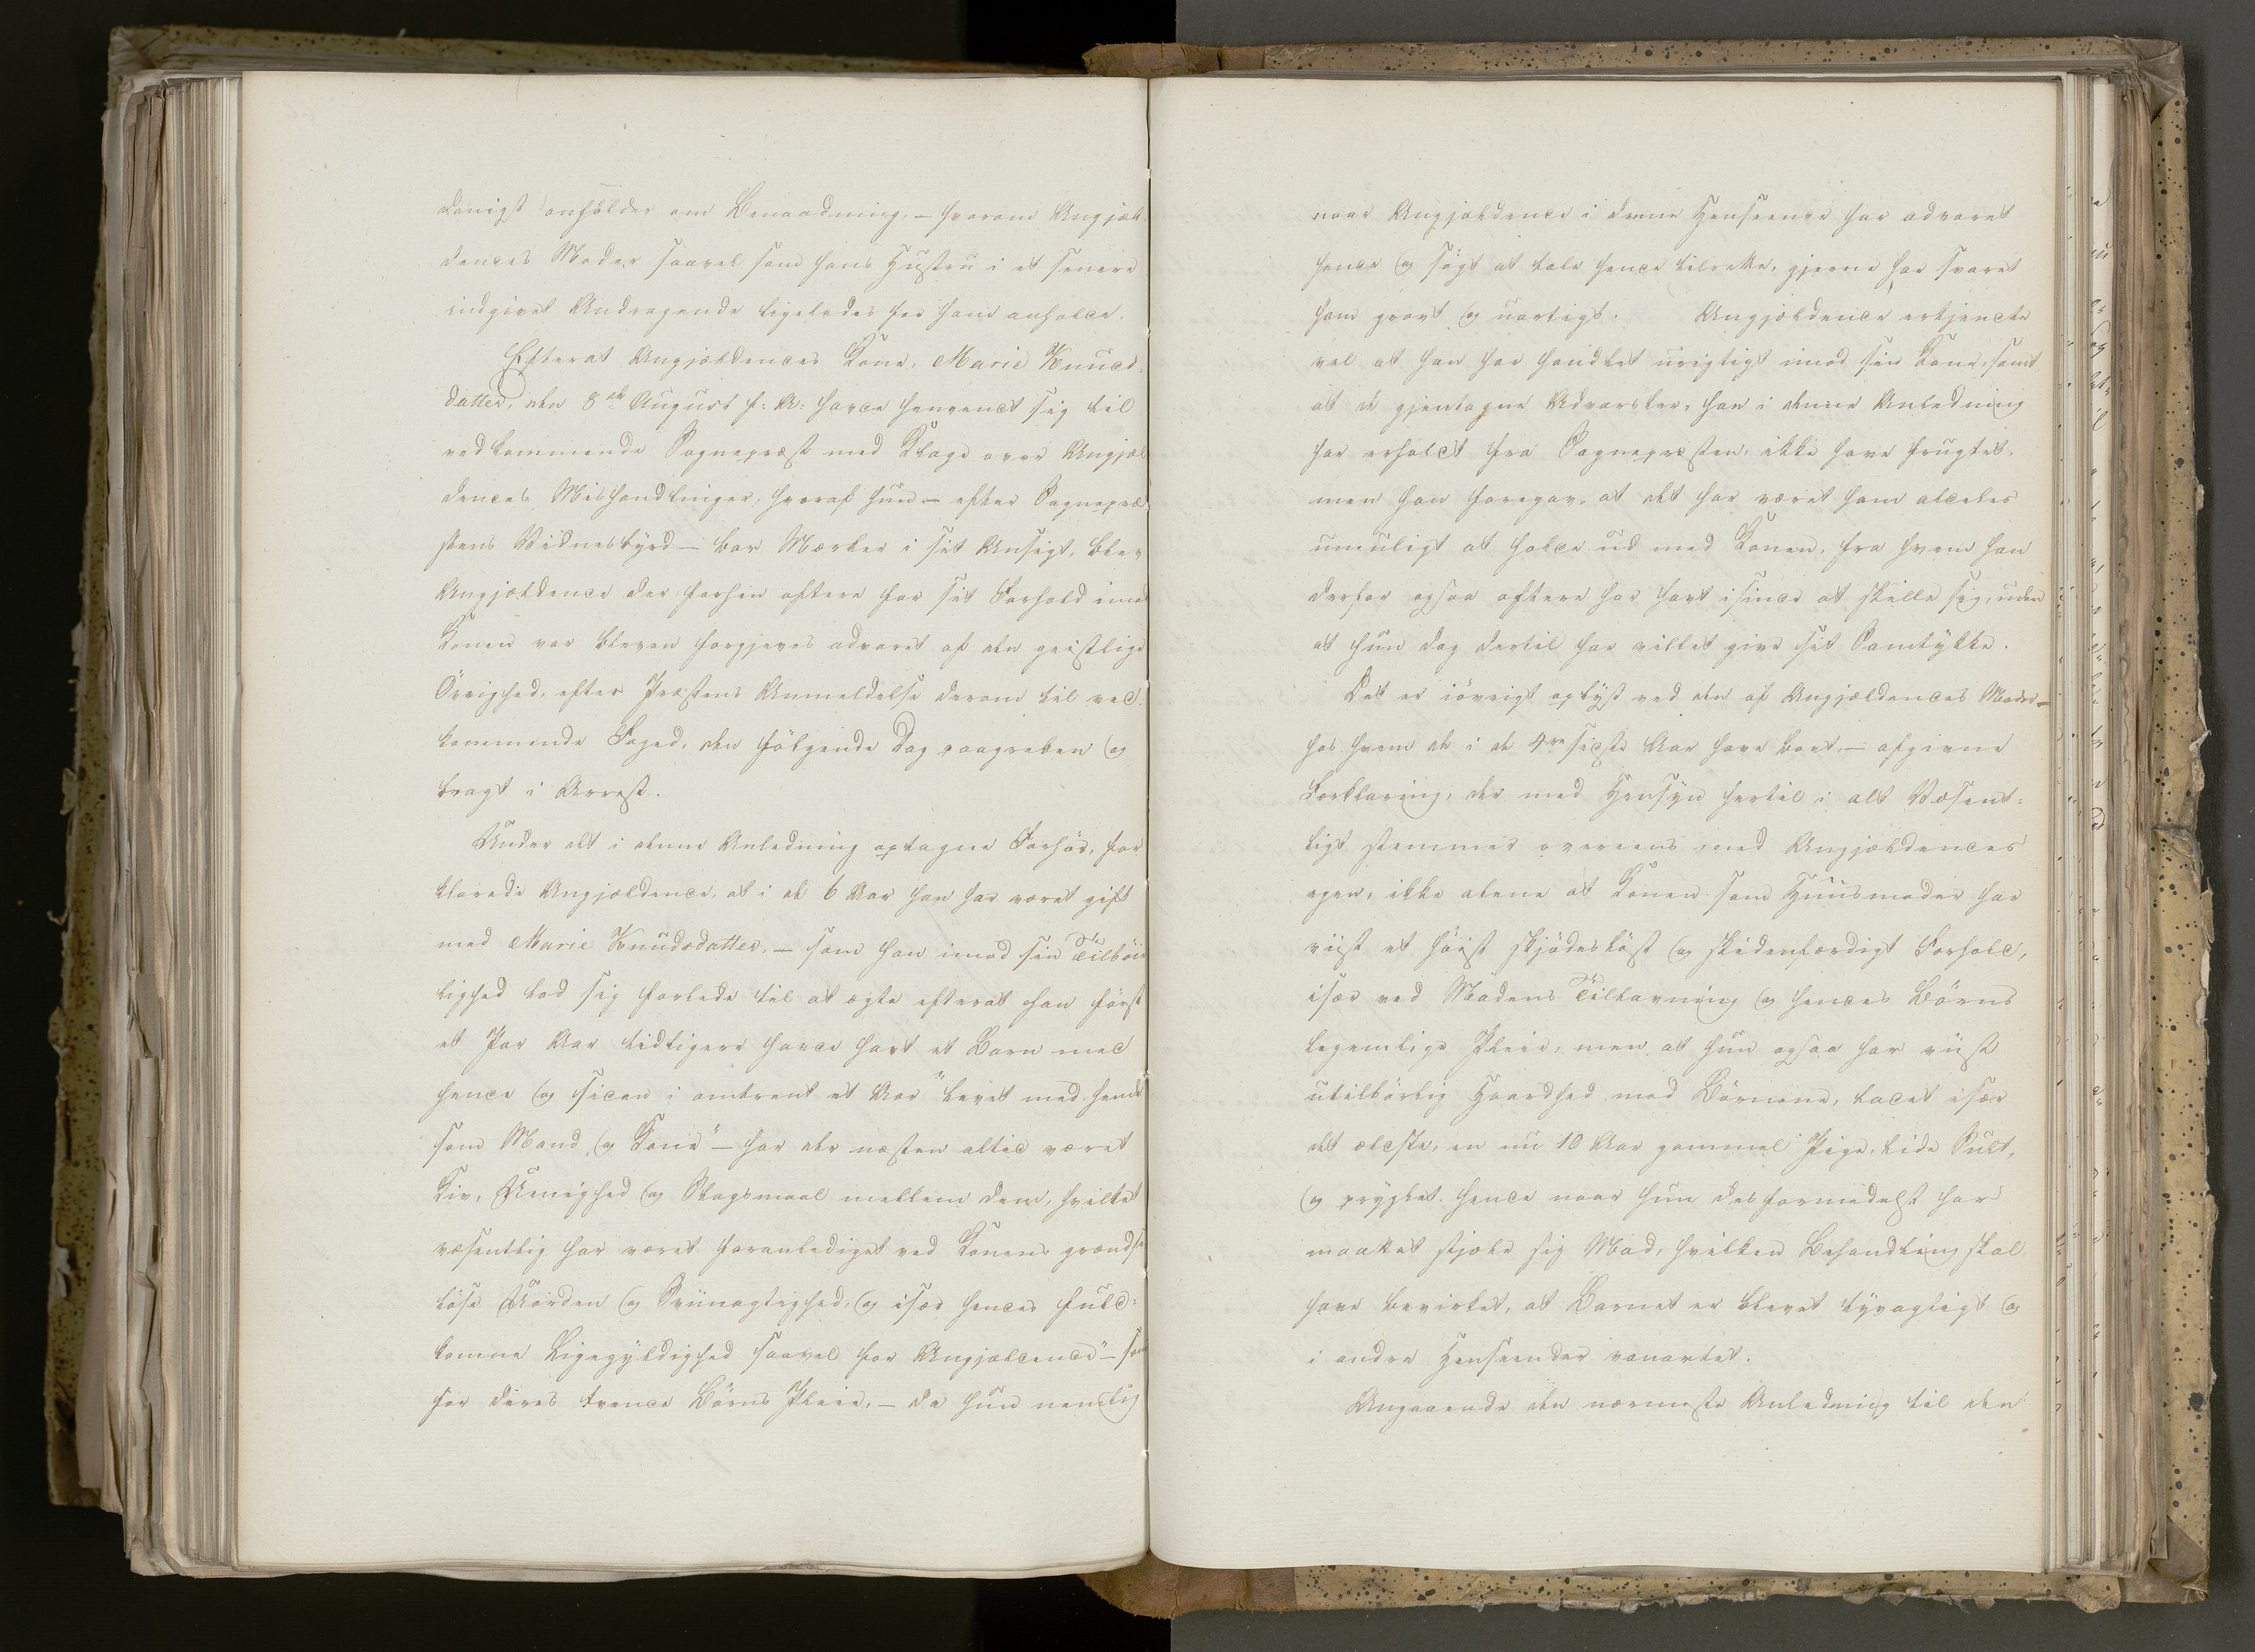 danigst anholder om Benaadning, – hvorom Angjæl-
dendes Moder saavel som hans Hustru i et senere
indgivet Andragende ligeledes for ham anholde.
Efterat Angjældendes Kone, Marie Knuds-
datter, den 8de August f: A: havde henvendt sig til
vedkommende Sognepræst med Klage over Angjæl
dendes Mishandlinger, hvoraf hun – efter Sognepræ
stens Vidnesbyrd – bar Mærker i sit Ansigt, blev
Angjældende der forhen oftere for sit Forhold imod
Konen var bleven forgjeves advaret af den geistlige
Övrighed, efter Præstens Anmeldelse derom til ved-
kommende Foged, den fölgende Dag paagreben og
bragt i Arrest.
Under det i denne Anledning optagne Forhör, for
klarede Angjældende, at i de 6 Aar han har været gift
med Marie Knudsdatter, – som han imod sin Tilböi
lighed lod sig forlede til at ægte efterat han först
et Par Aar tidligere havde havt et Barn med
hende og siden i omtrent et Aar "levet med hende
som Mand og Kone" – har der næsten altid været
Kiv, Uenighed og Slagsmaal mellem dem, hvilket
væsentlig har været foranlediget ved Konens grændse
löse Uorden og Sviinagtighed, og især hendes fuld-
komne Ligegyldighed saavel for Angjældende – som
for deres tvende Börns Pleie, – da hun nemlig
naar Angjældende i denne Henseende har advaret
hende og sögt at tale hende tilrette, gjerne har svaret
ham grovt og uartigt. Angjældende erkjendte
vel at han har handlet urigtigt imod sin Kone, samt
at de gjentagne Advarsler, han i denne Anledning
har erholdt fra Sognepræsten, ikke have frugtet,
men han foregav, at det har været ham aldeles
umuligt at holde ud med Konen, fra hvem han
derfor ogsaa oftere har havt isinde at skille sig, uden
at hun dog dertil har villet give sit Samtykke.
Det er iövrigt oplyst ved den af Angjældendes Moder –
hos hvem de i de 4re sidste Aar have boet, – afgivne
Forklaring, der med Hensyn hertil i alt Væsent-
ligt stemmer overeens med Angjældendes
egen, ikke alene at Konen som Huusmoder har
viist et höist skjödeslöst og skidenfærdigt Forhold,
især ved Madens Tillavning og hendes Börns
legemlige Pleie, men at hun ogsaa har viist
utilbörlig Haardhed mod Börnene, ladet især
det ældste, en nu 10 Aar gammel Pige, lide Sult,
og pryglet hende naar hun desformedelst har
maattet stjæle sig Mad, hvilken Behandling skal
have bevirket, at Barnet er blevet tyvagtigt og
i andre Henseender vanartet.
Angaaende den nærmeste Anledning til den